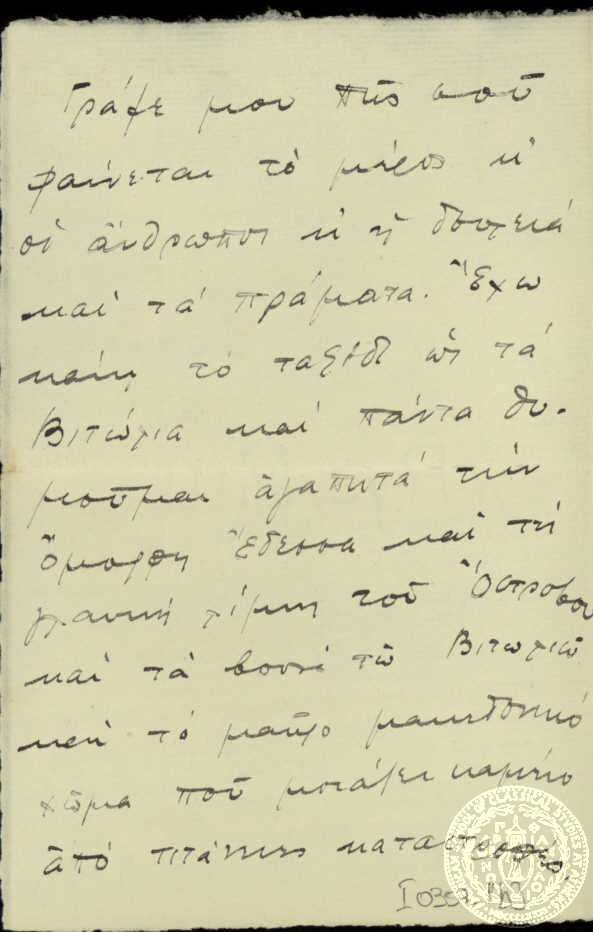 Γράψε μου πῶς σοῦ
φαίνεται τὸ μέρος κ'
οἱ ἄνθρωποι κ' ἡ δουλειά
καὶ τὰ πράματα. Ἔχω
κάμῃ τὸ ταξίδι ὡς τὰ
Βιτώλια καὶ πάντα θυ-
μιοῦμαι ἀγαπητὰ τὴν
ὄμορφη Ἔδεσσα καὶ τὴ
γλαυκὴ λίμνη τοῦ Ὀστρόβου
καὶ τὰ βουνὰ τῶ Βιτωλιῶ
καὶ τὸ μαῦρο μακεδονικό
χῶμα ποῦ μοιάζει καμένο
ἀπό τιτάνιες καταστροφές.